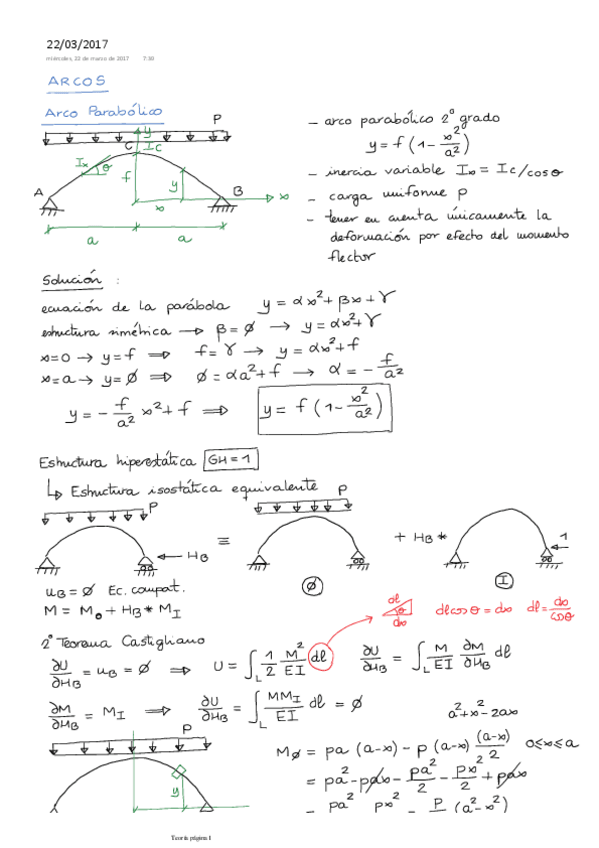 22/03/2017
miércoles, 22 de marzo de 2017 7:30
ARCOS
Arco Parabólico
P
y
C
Ic
Ix
θ
f
y
A
B
x
x
a
a
- arco parabólico 2º grado
y = f (1 - x²/a²)
- inercia variable Ix = Ic/cosθ
- carga uniforme p
- tener en cuenta únicamente la
deformación por efecto del momento
flector
Solución :
ecuación de la parábola y = αx² + βx + γ
estructura simétrica → β = ∅ → y = αx² + γ
x=0 → y = f ⇒ f = γ → y = αx² + f
x=a → y = ∅ ⇒ ∅ = αa² + f → α = - f/a²
y = - f/a² x² + f ⇒ y = f (1 - x²/a²)
Estructura hiperestática GH = 1
↳ Estructura isostática equivalente
P
HB
≡
P
∅
+ HB *
1
I
uB = ∅ Ec. compat.
M = M₀ + HB * MI
dl
θ
dx
dl cosθ = dx dl = dx/cosθ
2º Teorema Castigliano
∂U/∂HB = uB = ∅ ⇒ U = ∫L 1/2 M²/EI dl ∂U/∂HB = ∫L M/EI ∂M/∂HB dl
∂M/∂HB = MI ⇒ ∂U/∂HB = ∫L MMI/EI dl = ∅
a² + x² - 2ax
P
y
M∅ = pa (a-x) - p (a-x) (a-x)/2 0≤x≤a
= pa² - pax - pa²/2 - px²/2 + pax
= pa² px² = p (a² - x²)
Teoría página 1